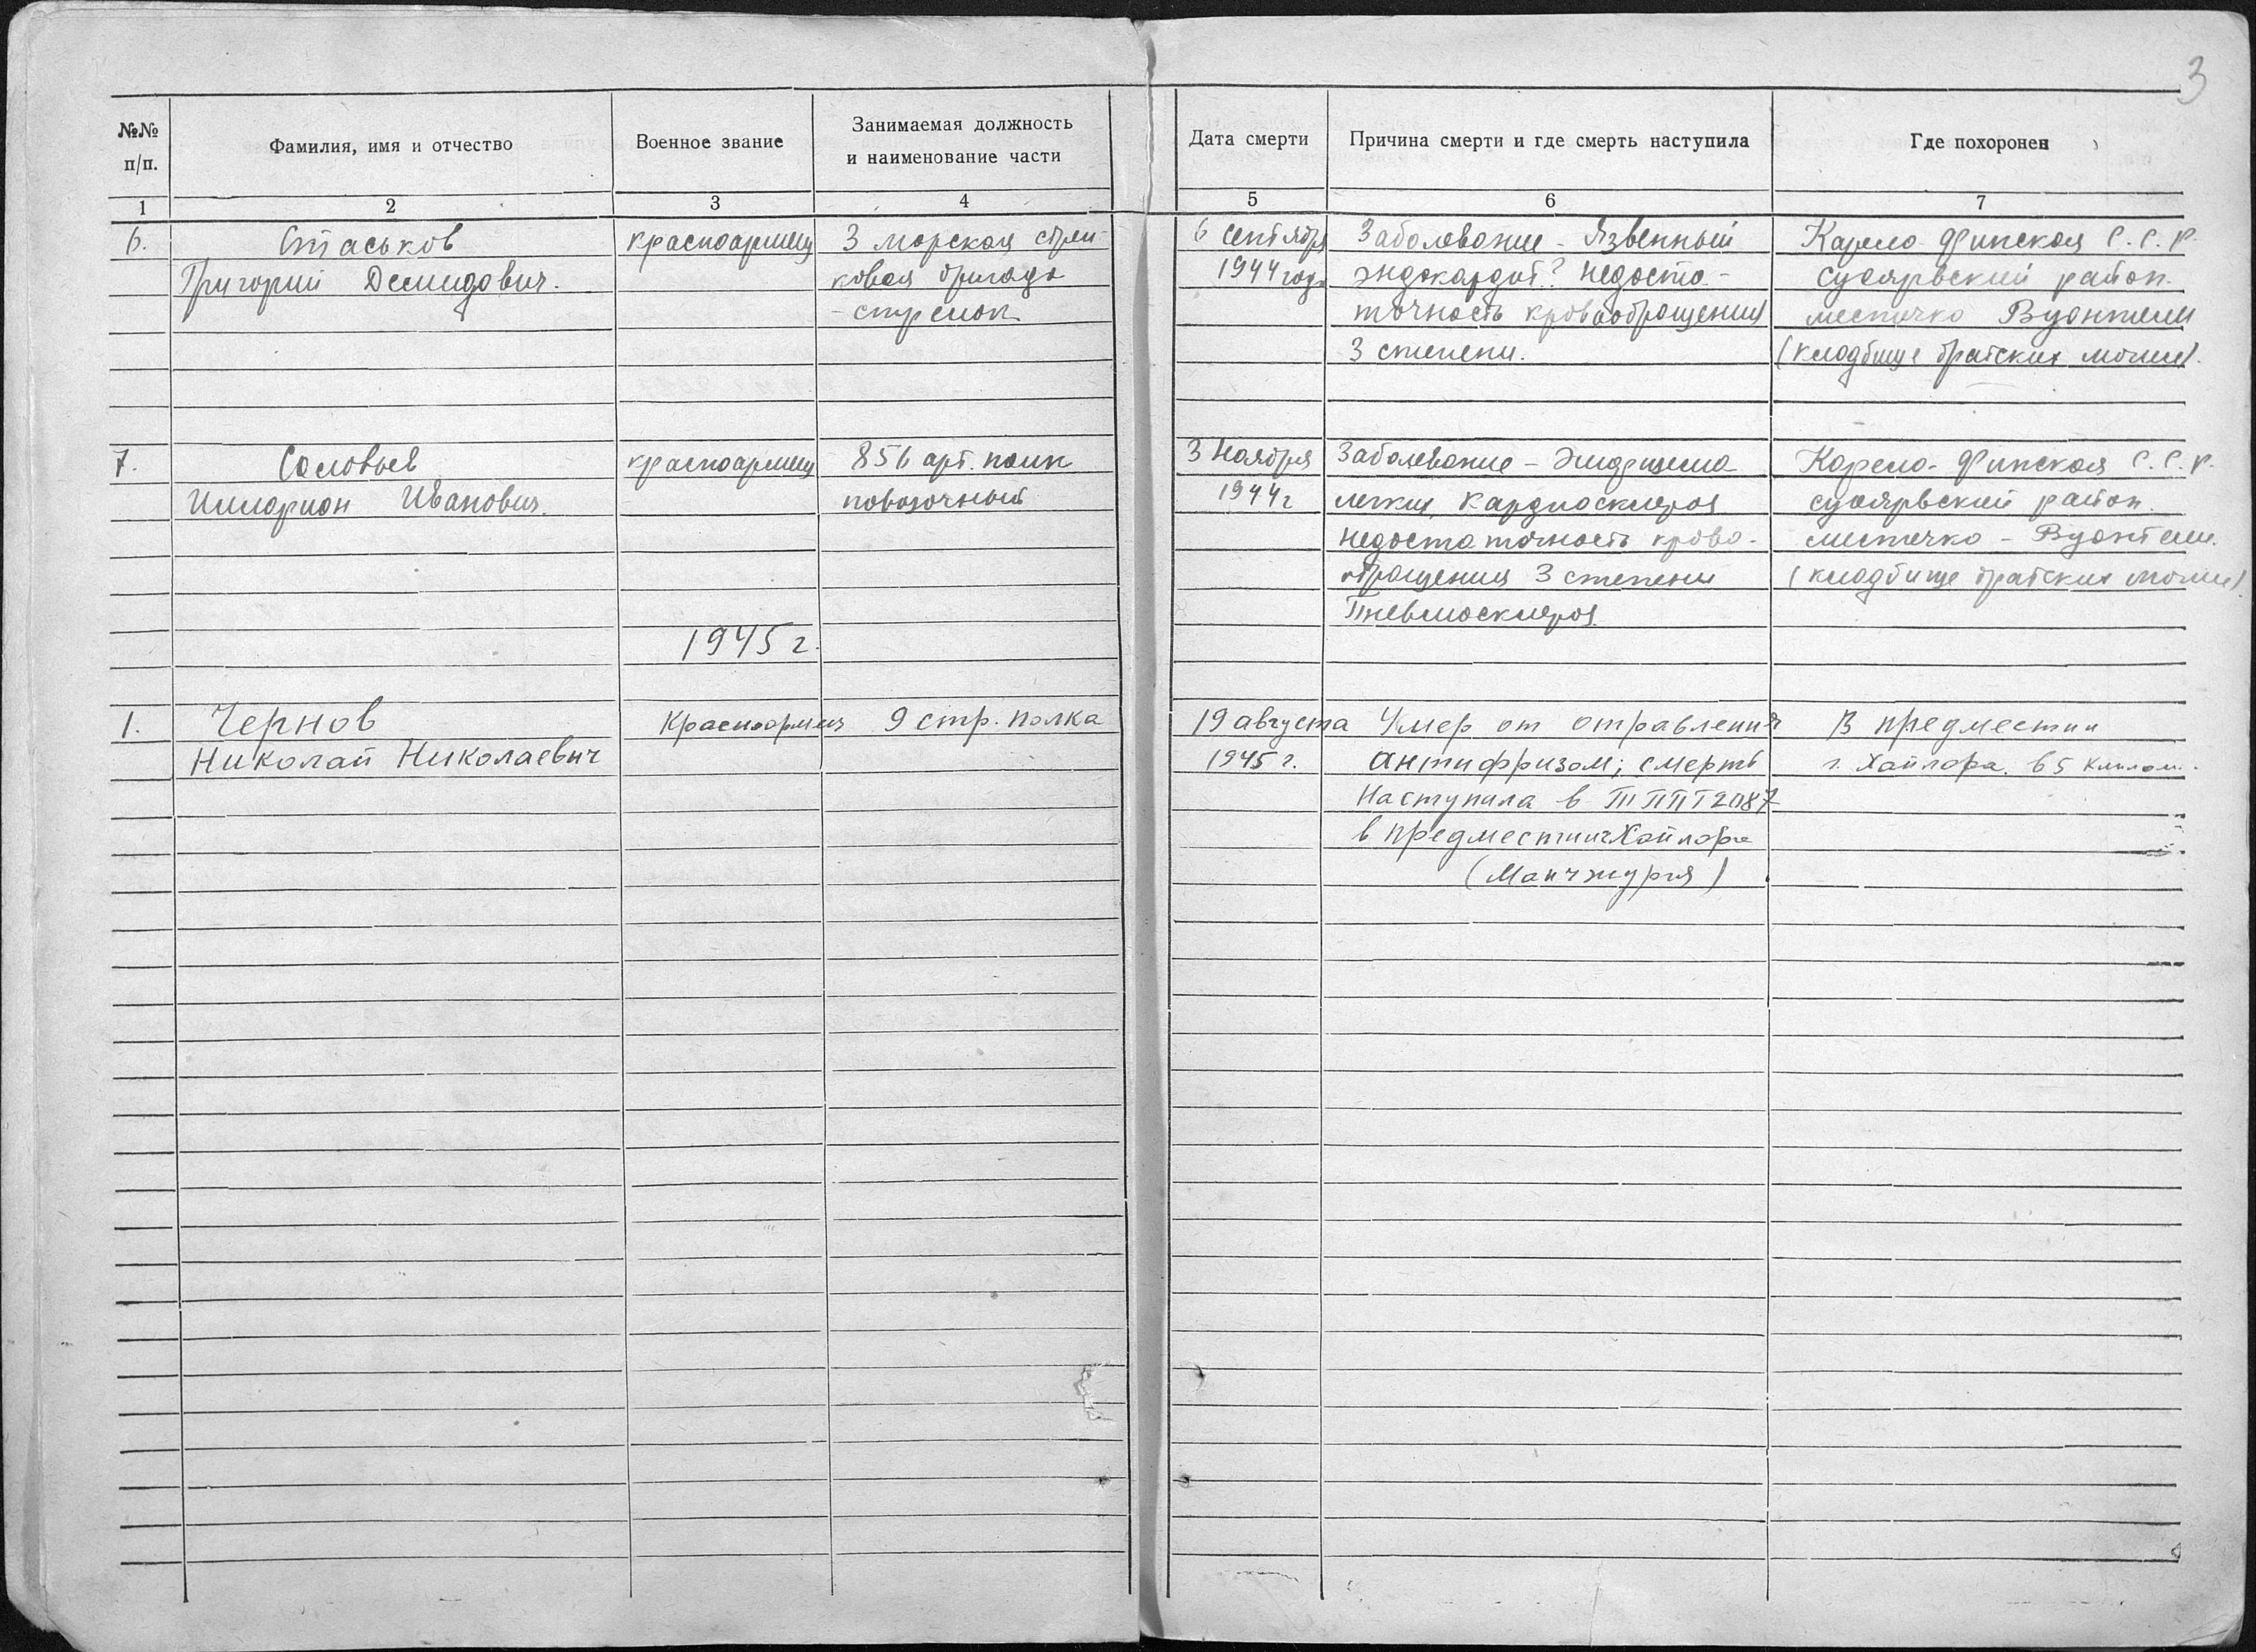 3
№№ п/п.
Фамилия, имя и отчество
Военное звание
Занимаемая должность
и наименование части
Дата смерти
Причина смерти и где смерть наступила
Где похоронен
1 2 3 4 5 6 7
6. Стаськов красноармеец 3 морская стрел- 6 Сентября Заболевание - Язвенный Карело-Финская С.С.Р.
Григорий Демидович. ковая бригада 1944 года эндокардит? Недоста- суоярвский район.
- стрелок точность кровообращения местечко Вуонтели
3 степени. (кладбище братских могил).
7. Соловьев красноармеец 856 арт. полк 3 Ноября Заболевание - Эмфизема Карело-Финская С.С.Р.
Илларион Иванович. повозочный 1944 г легких, Кардиосклероз суоярвский район.
Недостаточность крово- местечко - Вуонтели.
обращения 3 степени (кладбище братских могил).
Пневмосклероз.
1945 г.
1. Чернов Красноармеец 9 стр. полка 19 августа Умер от отравления В предместии
Николай Николаевич 1945 г. Антифризом; смерть г. Хайлара. в 5 килом.
Наступила в ТППГ 2087
в предместии Хайлара
(Манчжурия)